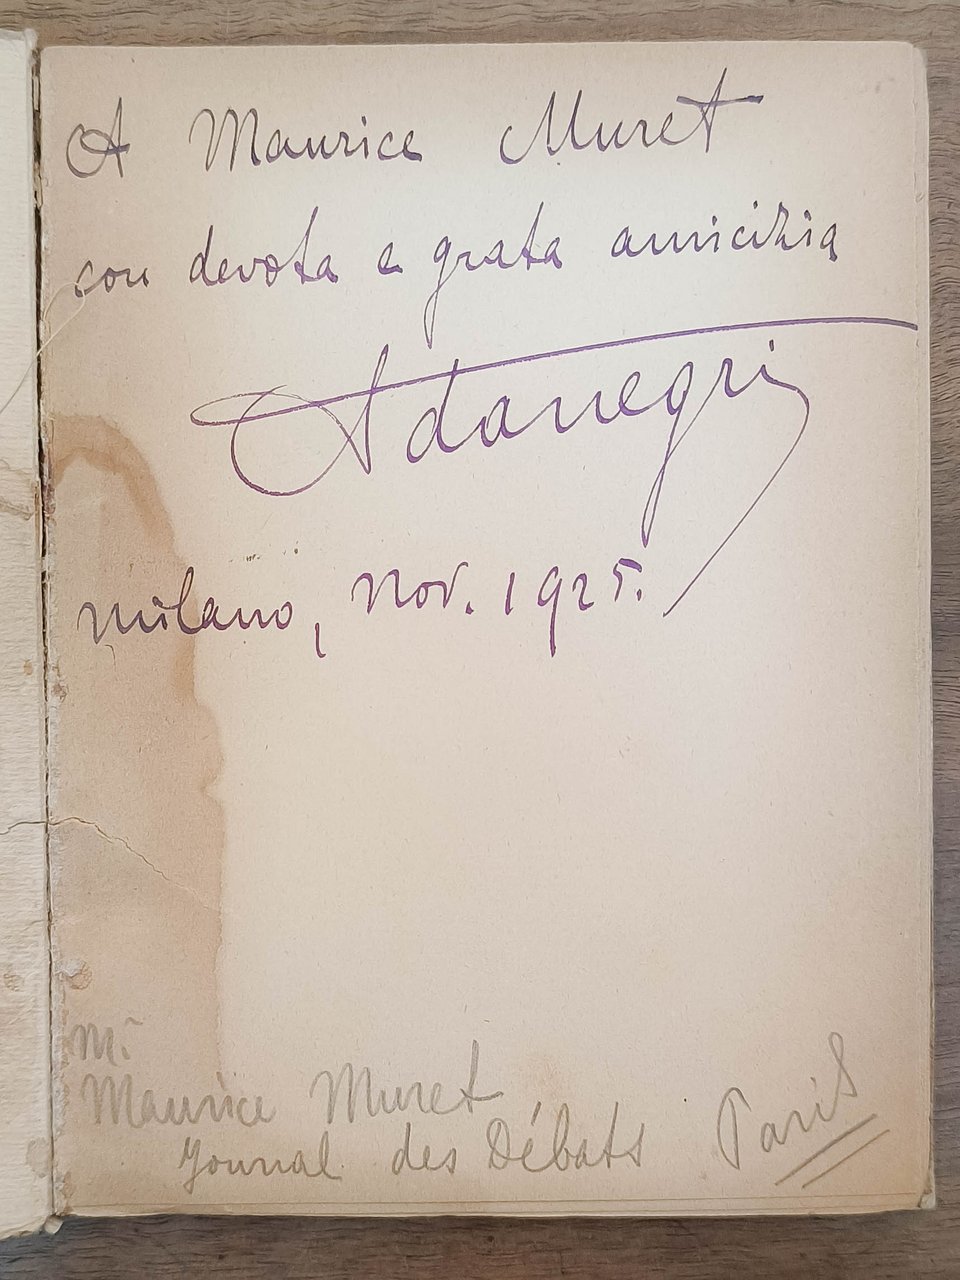 A Maurice Muret
con devota e grata amicizia
Adanegri
Milano, Nov. 1925.
M.
Maurice Muret
Journal des Débats Paris